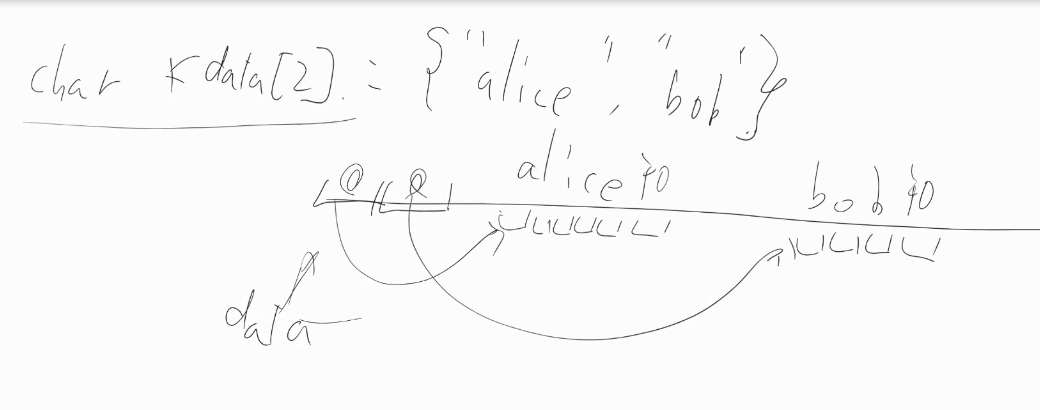 char *data[2] = {"alice", "bob"}
alice\0 bob\0
data